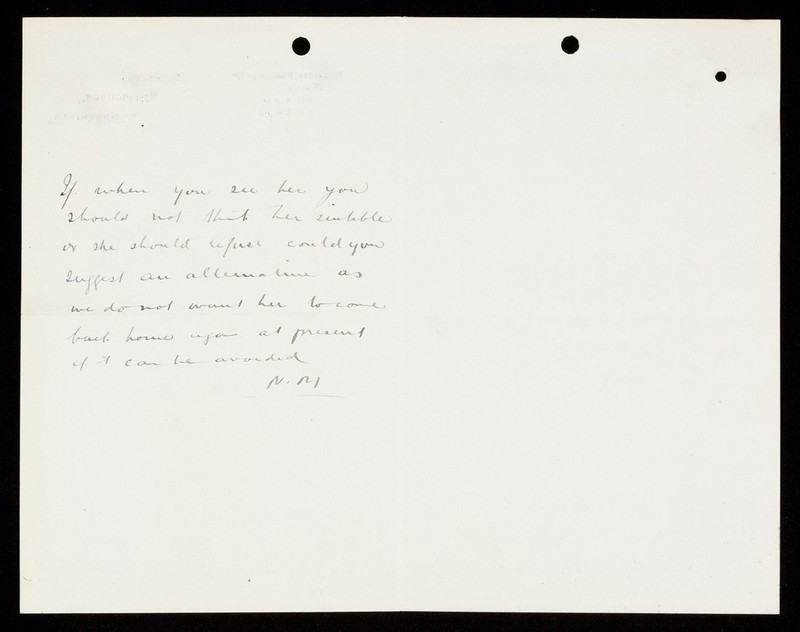 If when you see her you
should not think her suitable
or she should refuse could you
suggest an alternative as
we do not want her to come
back home again at present
if it can be avoided
N. M